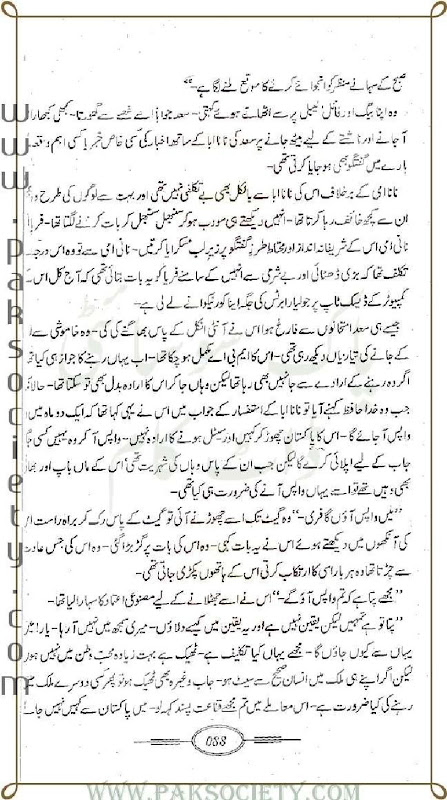 WWW.PAKSOCIETY.COM
صبح کے سہانے منظر کو انجوائے کرنے کا موقع ملنے لگا ہے۔“
وہ اپنا بیگ اور فائل ٹیبل پر سے اٹھاتے ہوئے کہتی۔ سعد جواباً اسے غصے سے گھورتا۔ کبھی کبھار اس
آ جانے اور ناشتے کے لیے بیٹھ جانے پر سعد کی نانا ابا کے ساتھ اخبار کی کسی خاص خبر یا کسی اہم واقعہ
بارے میں گفتگو بھی ہو جایا کرتی تھی۔
نانا امی کے برخلاف اس کی نانا ابا سے بالکل بھی بے تکلفی نہیں تھی اور بہت سے لوگوں کی طرح وہ
ان سے کچھ خائف رہا کرتا تھا۔ انہیں دیکھتے ہی مودب ہو کر سنبھل سنبھل کر بات کرنے لگتا تھا۔ فریا
نانی امی اس کے شریفانہ انداز اور محتاط طرز گفتگو پر زیر لب مسکرایا کرتیں۔ نانی امی سے تو وہ اس درجہ
تکلف تھا کہ بڑی ڈھٹائی اور بے شرمی سے انہیں کے سامنے فریا کو یہ بات بتائی تھی کہ آج کل اس کے
کمپیوٹر کے ڈیسک ٹاپ پر جولیا رابرٹس کی جگہ اینا کورنیکوا نے لے لی ہے۔
جیسے ہی سعد امتحانوں سے فارغ ہوا اس نے آنٹی انکل کے پاس بھاگنے کی کی۔ وہ خاموشی سے ا
کے جانے کی تیاریاں دیکھ رہی تھی۔ اس کا ایم بی اے مکمل ہو چکا تھا۔ اب یہاں رہنے کا جواز ہی کیا تھا
اگر وہ رہنے کے ارادے سے جا نہیں بھی رہا تھا لیکن وہاں جا کر اس کا ارادہ بدل بھی تو سکتا تھا۔ حالانکہ
جب وہ خدا حافظ کہنے آیا تو نانا ابا کے استفسار کے جواب میں اس نے یہی کہا تھا کہ ایک دو ماہ میں
واپس آ جائے گا۔ اس کا پاکستان چھوڑ کر کہیں اور سیٹل ہونے کا ارادہ نہیں۔ واپس آ کر وہ یہیں کسی
جاب کے لیے اپلائی کرے گا لیکن جب ان کے پاس وہاں کی شہریت تھی‘ اس کے ماں باپ اور بھائی
بھی وہیں تھے تو اسے یہاں واپس آنے کی ضرورت ہی کیا تھی۔
”میں واپس آؤں گا فری۔“ وہ گیٹ تک اسے چھوڑنے آئی تو گیٹ کے پاس رک کر براہ راست اس
کی آنکھوں میں دیکھتے ہوئے اس نے یہ بات کہی۔ وہ اس کی بات پر گڑبڑا گئی۔ وہ اس کی جس عادت
سے چڑتا تھا وہ ہر بار اسی کا ارتکاب کرتی اس کے ہاتھوں پکڑی جاتی تھی۔
”مجھے پتا ہے کہ تم واپس آؤ گے۔“ اس نے اسے جھٹلانے کے لیے مصنوعی اعتماد کا سہارا لیا تھا۔
”پتا تو ہے تمہیں لیکن یقین نہیں ہے اور یہ یقین میں کیسے دلاؤں۔ میری سمجھ میں نہیں آ رہا۔ یار! میں
یہاں سے کیوں جاؤں گا۔ مجھے یہاں کیا تکلیف ہے۔ ٹھیک ہے بہت زیادہ محب وطن میں نہیں ہوں
لیکن اگر اپنے ہی ملک میں انسان صحیح سے سیٹ ہو۔ جاب وغیرہ بھی ٹھیک ہو تو پھر کسی دوسرے ملک میں
رہنے کی کیا ضرورت ہے۔ اس معاملے میں تم مجھے قناعت پسند کہہ لو۔ میں پاکستان سے کہیں نہیں جا
088
WWW.PAKSOCIETY.COM